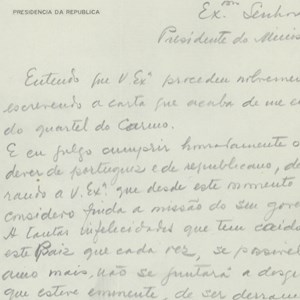 PRESIDENCIA DA REPUBLICA
Ex.mo Senhor
Presidente do Minis
Entendo que V. Exª procedeu nobremen
escrevendo a carta que acaba de me en
do quartel do Carmo.
E eu julgo cumprir honradamente o
dever de portuguez e de republicano, de
rando a V. Exª que desde este momento
considero finda a missão do seu gove
A tantas infelicidades que tem caído
este Paiz que cada vez, se possivel
amo mais, não se juntará a desgr
que esteve eminente, de ser derram